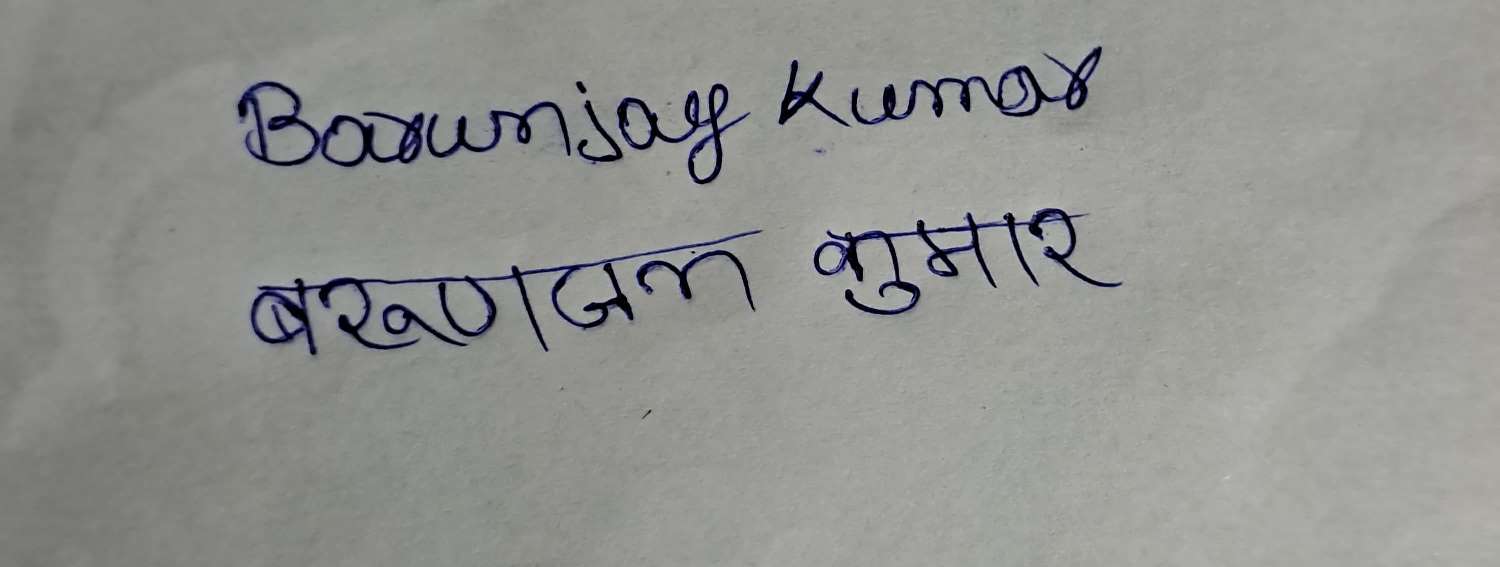 Barunjay Kumar
बरूणजय कुमार